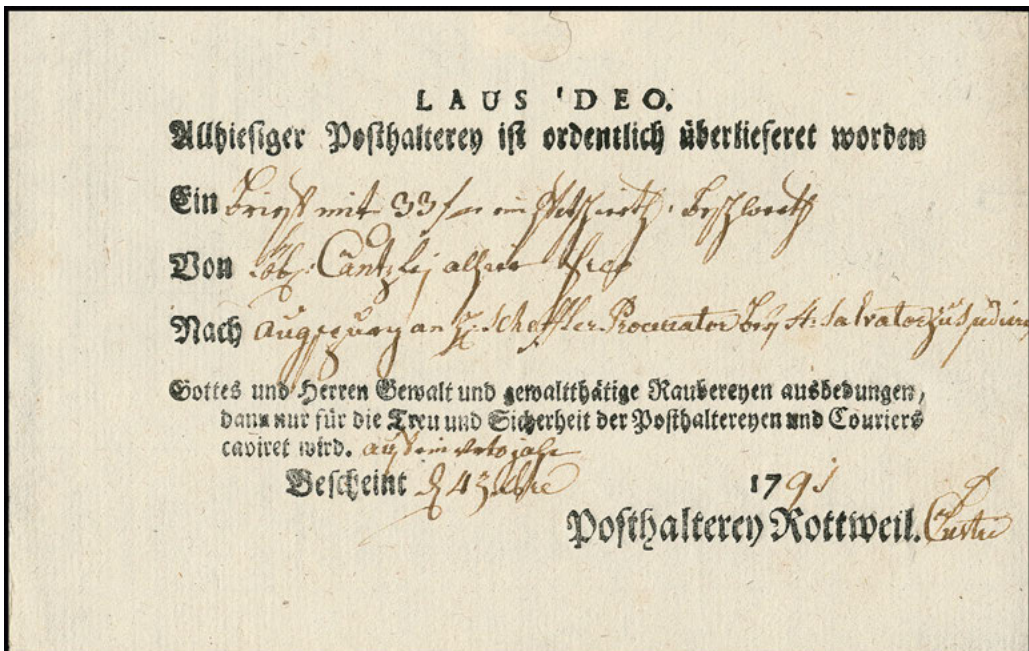 LAUS DEO.
Allhiesiger Posthalterey ist ordentlich überliefert worden
Ein Brieff mit 33 beschwerth
Von Löbl: Cantzley alhier
Nach Augspurg an H: Scheffler Procurator bey St: Salvator zu
Gottes und Herren Gewalt und gewaltthätige Raubereyen ausbedungen,
dann nur für die Treu und Sicherheit der Posthaltereyen und Couriers
caviret wird.
Bescheint d 4 1791
Posthalterey Rottweil.